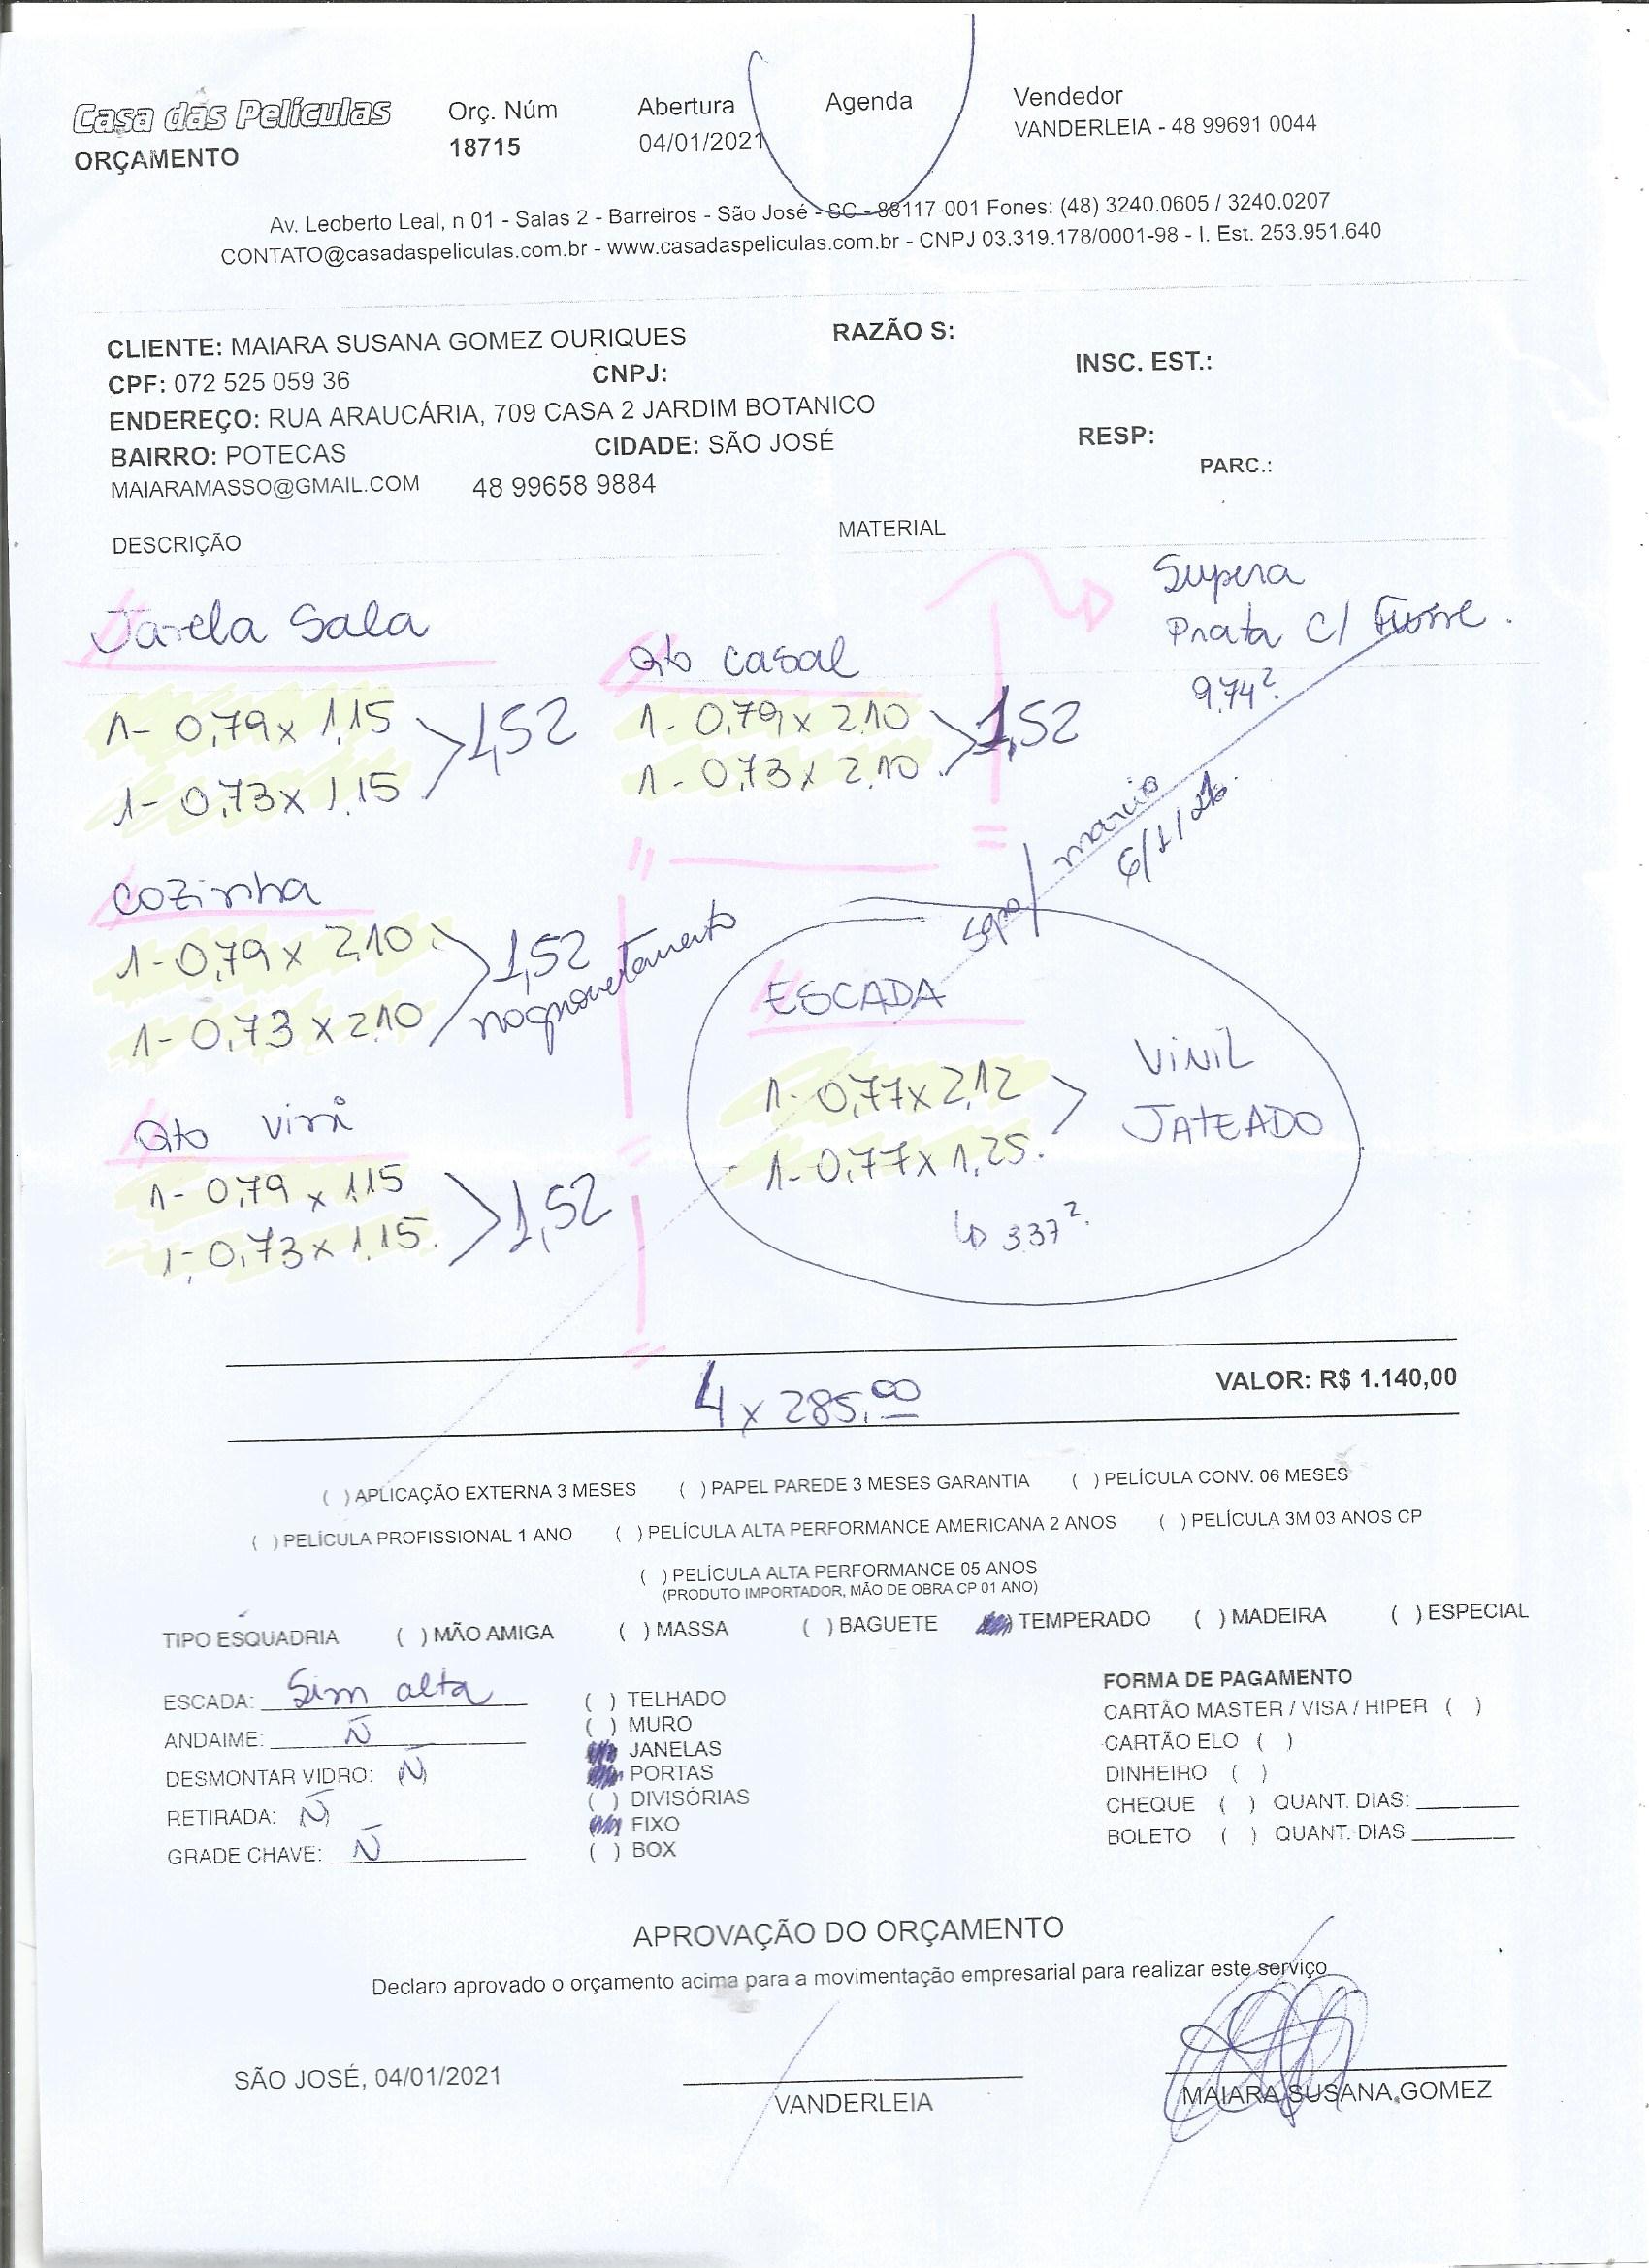 Casa das Películas
ORÇAMENTO
Orç. Núm
18715
Abertura
04/01/2021
Agenda
Vendedor
VANDERLEIA - 48 99691 0044
Av. Leoberto Leal, n 01 - Salas 2 - Barreiros - São José - SC - 88117-001 Fones: (48) 3240.0605 / 3240.0207
CONTATO@casadaspeliculas.com.br - www.casadaspeliculas.com.br - CNPJ 03.319.178/0001-98 - I. Est. 253.951.640
CLIENTE: MAIARA SUSANA GOMEZ OURIQUES
RAZÃO S:
CPF: 072 525 059 36
CNPJ:
INSC. EST.:
ENDEREÇO: RUA ARAUCÁRIA, 709 CASA 2 JARDIM BOTANICO
BAIRRO: POTECAS
CIDADE: SÃO JOSÉ
RESP:
PARC.:
MAIARAMASSO@GMAIL.COM
48 99658 9884
DESCRIÇÃO
MATERIAL
Supera
Prata C/
9,74².
Janela Sala
1- 0,79 x 1,15
1- 0,73 x 1,15
1,52
Qto casal
1- 0,79 x 2,10
1- 0,73 x 2,10
1,52
marcio
6/1/21.
Cozinha
1- 0,79 x 2,10
1- 0,73 x 2,10
1,52
Qto
1- 0,79 x 1,15
1- 0,73 x 1,15.
1,52
ESCADA
1- 0,77 x 2,12
1- 0,77 x 1,25.
ViNiL
JATEADO
3,37².
4 x 285,00
VALOR: R$ 1.140,00
( ) APLICAÇÃO EXTERNA 3 MESES ( ) PAPEL PAREDE 3 MESES GARANTIA ( ) PELÍCULA CONV. 06 MESES
( ) PELÍCULA PROFISSIONAL 1 ANO ( ) PELÍCULA ALTA PERFORMANCE AMERICANA 2 ANOS ( ) PELÍCULA 3M 03 ANOS CP
( ) PELÍCULA ALTA PERFORMANCE 05 ANOS
(PRODUTO IMPORTADOR, MÃO DE OBRA CP 01 ANO)
TIPO ESQUADRIA ( ) MÃO AMIGA ( ) MASSA ( ) BAGUETE ( ) TEMPERADO ( ) MADEIRA ( ) ESPECIAL
ESCADA: Sim alta
ANDAIME: Ñ
DESMONTAR VIDRO: Ñ
RETIRADA: Ñ
GRADE CHAVE: Ñ
( ) TELHADO
( ) MURO
( ) JANELAS
( ) PORTAS
( ) DIVISÓRIAS
( ) FIXO
( ) BOX
FORMA DE PAGAMENTO
CARTÃO MASTER / VISA / HIPER ( )
CARTÃO ELO ( )
DINHEIRO ( )
CHEQUE ( ) QUANT. DIAS:
BOLETO ( ) QUANT. DIAS
APROVAÇÃO DO ORÇAMENTO
Declaro aprovado o orçamento acima para a movimentação empresarial para realizar este serviço
SÃO JOSÉ, 04/01/2021
VANDERLEIA
MAIARA SUSANA GOMEZ